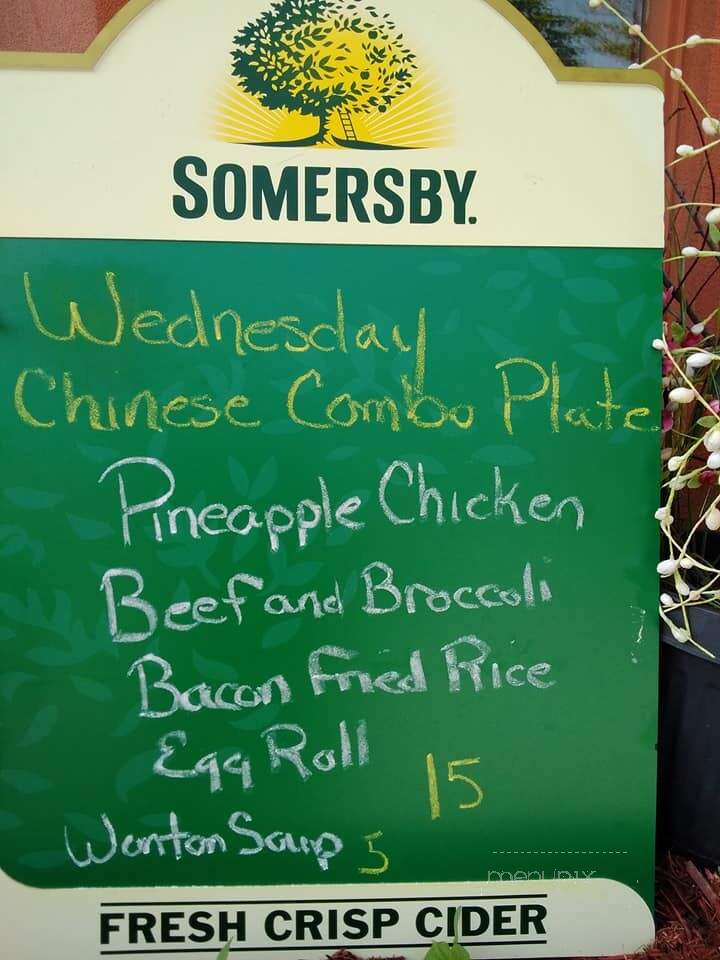 SOMERSBY.
Wednesday
Chinese Combo Plate
Pineapple Chicken
Beef and Broccoli
Bacon Fried Rice
Egg Roll
15
Wonton Soup 5
menupix
FRESH CRISP CIDER